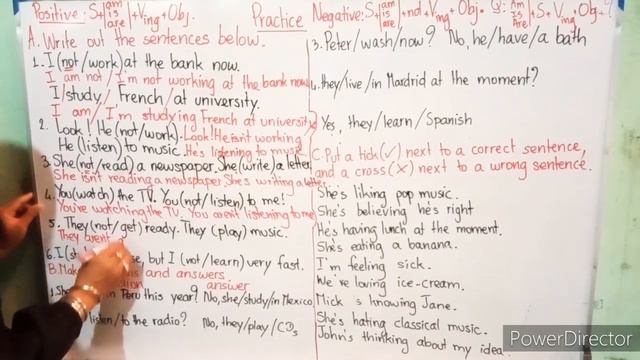 Positive: S+ am is are +Ving+Obj. Practice Negative: S+ am is are +not+Ving+Obj. Q: Am Is Are +S+Ving+Obj.?
A. Write out the sentences below.
1. I (not/work) at the bank now.
I am not/I'm not working at the bank now
I/study/ French/at university.
I am/I'm studying French at university
2. Look! He (not/work). Look! He isn't working
He (listen) to music. He's listening to
3. She (not/read) a newspaper. She (write) a letter
She isn't reading a newspaper She's writing a letter
4. You (watch) the TV. You (not/listen) to me!
You're watching the TV. You aren't listening to me
5. They (not/get) ready. They (play) music.
They aren't
6. I but I (not/learn) very fast.
B. and answers
answer
1. in Peru this year? No, she/study/in Mexico
listen/to the radio? No, they/play/CDs
3. Peter/wash/now? No, he/have/a bath
4. they/live/in Mardrid at the moment?
Yes, they/learn/Spanish
C. Put a tick (✓) next to a correct sentence,
and a cross (X) next to a wrong sentence.
She's liking pop music.
She's believing he's right
He's having lunch at the moment.
She's eating a banana.
I'm feeling sick.
We're loving ice-cream.
Mick is knowing Jane.
She's hating classical music.
John's thinking about my idea
PowerDirector